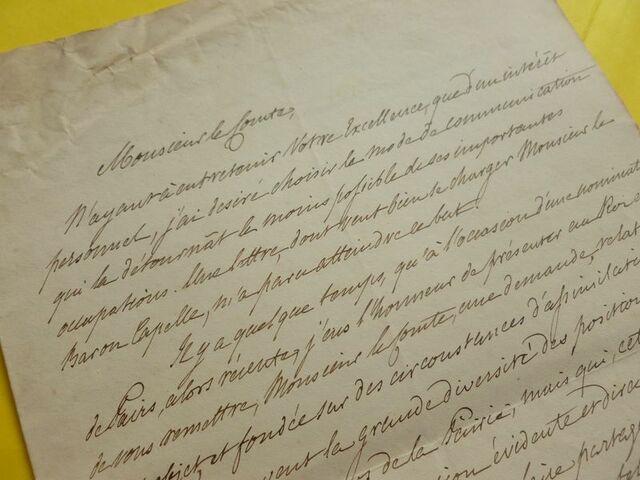 Monsieur le Comte,
N'ayant à entretenir Votre Excellence, que d'un intérêt
personnel, j'ai désiré choisir le mode de communication
qui la détournât le moins possible de ses importantes
occupations. Une lettre, dont veut bien se charger Monsieur le
Baron Capelle, m'a paru atteindre ce but.
Il y a quelque temps, qu'à l'occasion d'une nominat
de Pairs, alors récente, j'eus l'honneur de présenter au Roi
de vous remettre, Monsieur le Comte, une demande, relat
et fondée sur des circonstances d'assimilati
la grande diversité des position
de la Pairie, mais qui, cet
évidente et dire
partag